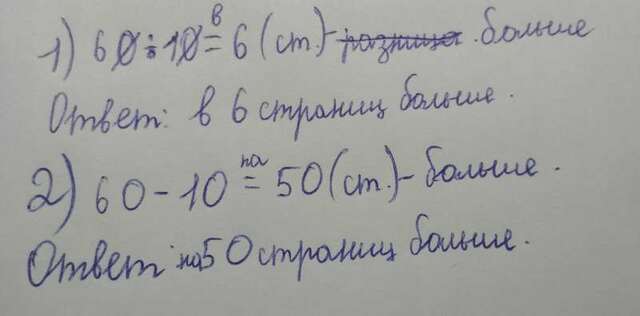 1) 60:10=в 6 (ст.)- разница больше
Ответ: в 6 страниц больше.
2) 60-10=на 50 (ст.)- больше.
Ответ: на 50 страниц больше.